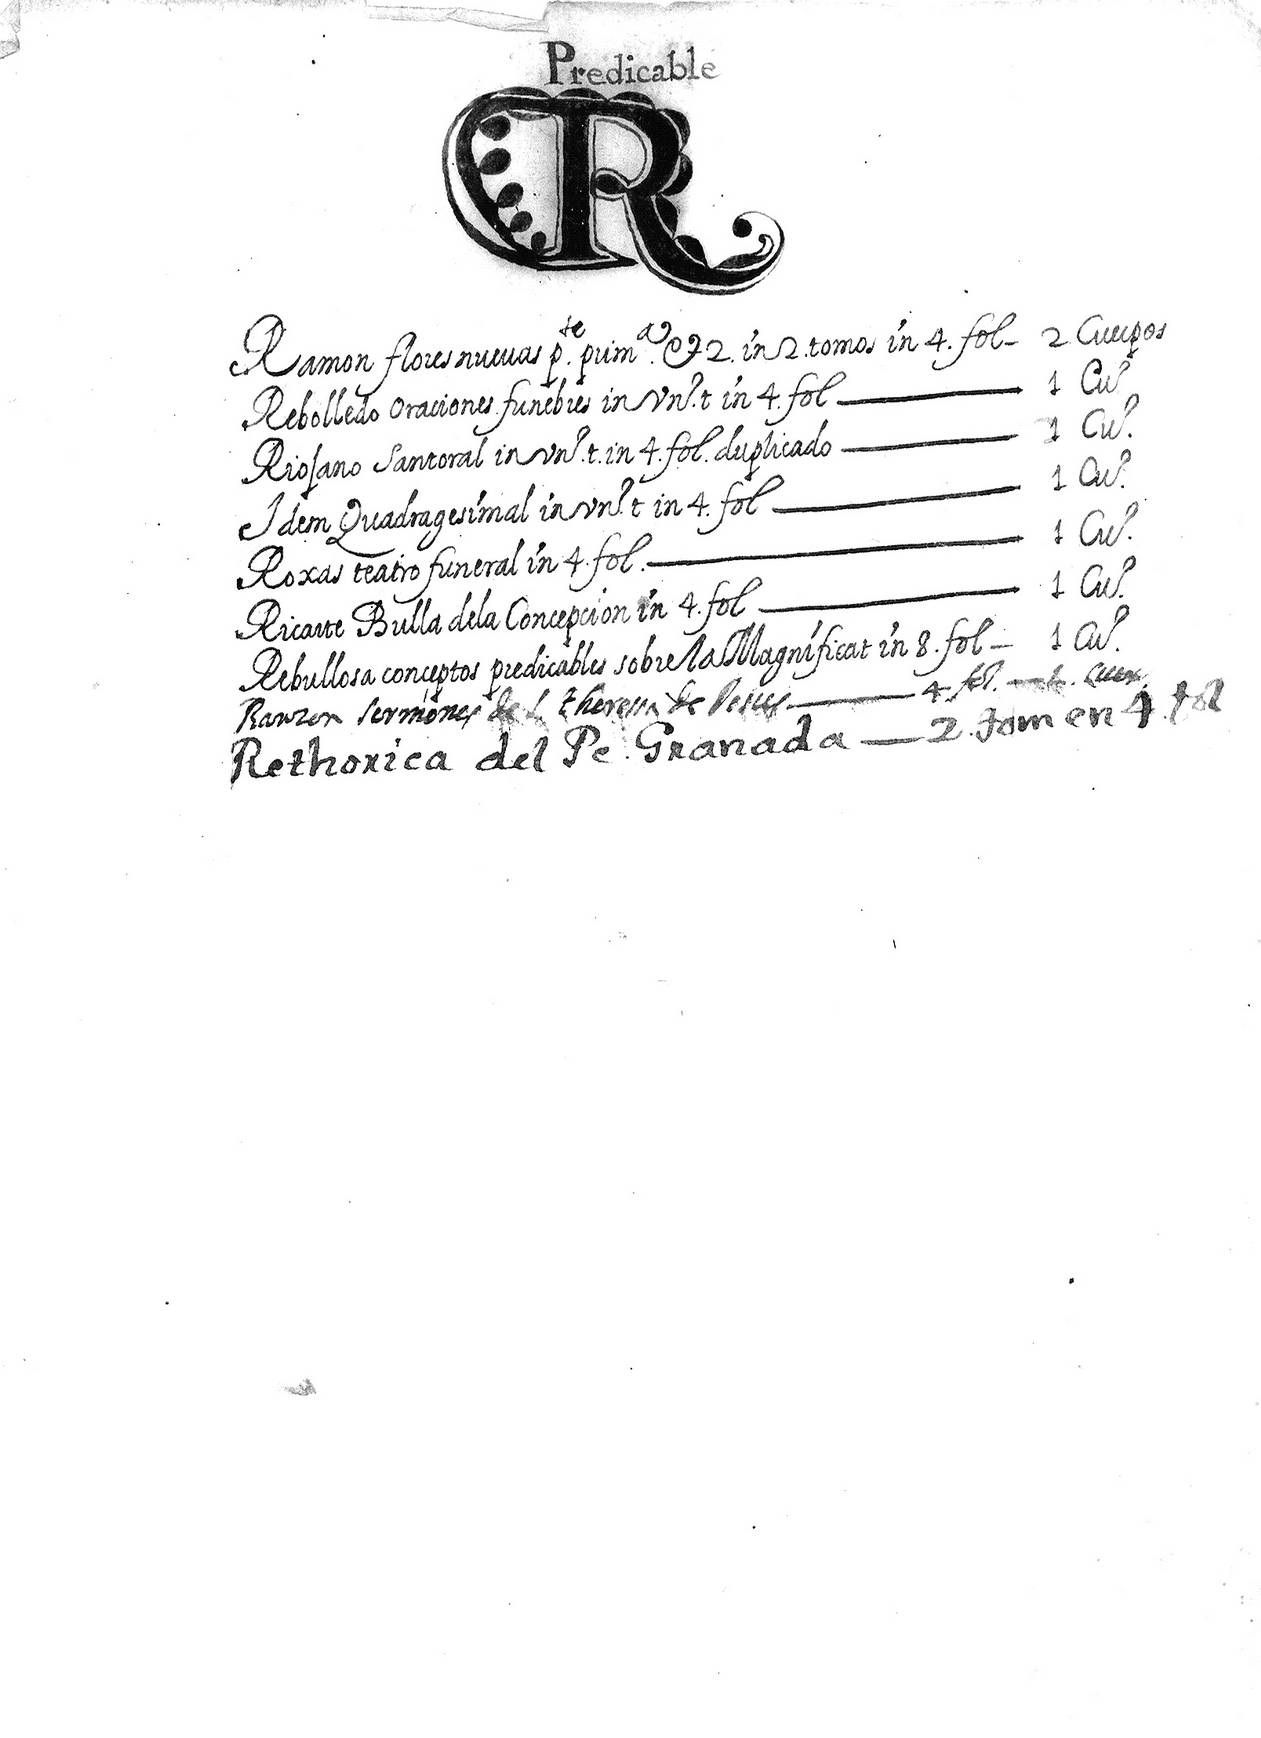 Predicable
R
Ramon flores nueuas p.te prim.a & 2. in 2. tomos in 4. fol - 2 Cuerpos
Rebolledo oraciones funebres in vn.o t in 4. fol — 1 Cu.o
Riosano Santoral in vn.o t. in 4. fol. duplicado — 1 Cu.o
Idem Quadragesimal in vn.o t in 4. fol — 1 Cu.o
Roxas teatro funeral in 4. fol. — 1 Cu.o
Ricarte Bulla dela Concepcion in 4. fol — 1 Cu.o
Rebullosa conceptos predicables sobre la Magnificat in 8. fol — 1 Cu.o
sermones de S. theresa de Jesus — 4. fol. — 1. Cuer.
Rethorica del Pe. Granada — 2. tom en 4. fol